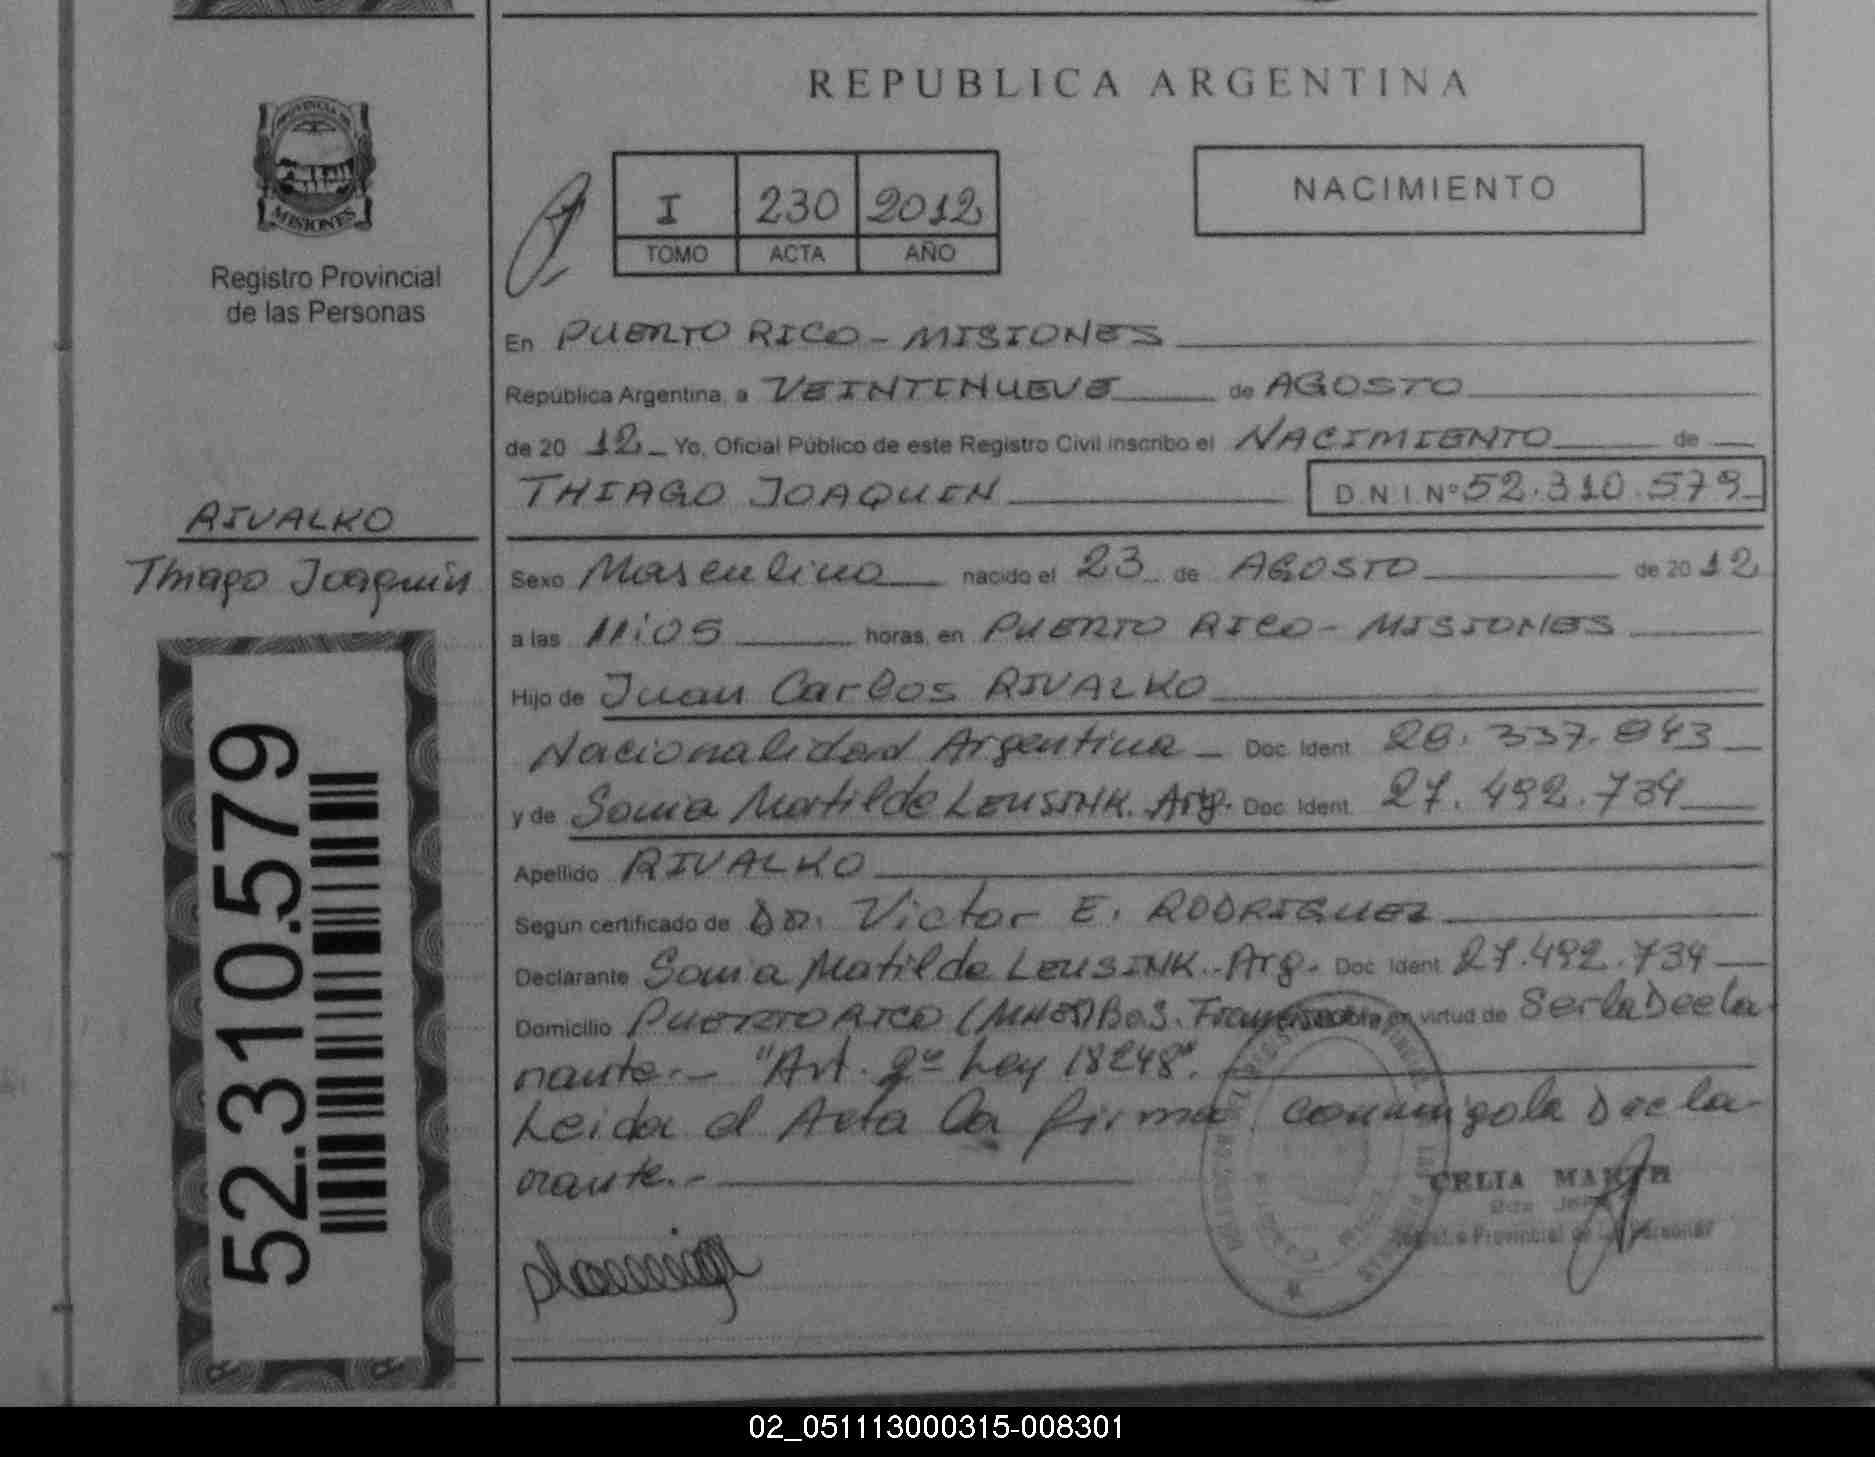 REPUBLICA ARGENTINA
PROVINCIA DE
MISIONES
Registro Provincial
de las Personas
I 230 2012
TOMO ACTA AÑO
NACIMIENTO
En PUERTO RICO - MISIONES
República Argentina, a VEINTINUEVE de AGOSTO
de 20 12 Yo, Oficial Público de este Registro Civil inscribo el NACIMIENTO de
THIAGO JOAQUIN D.N.I. Nº 52.310.579
RIVALKO
Thiago Joaquin
52.310.579
Sexo Masculino nacido el 23 de AGOSTO de 20 12
a las 11:05 horas, en PUERTO RICO - MISIONES
Hijo de Juan Carlos RIVALKO
Nacionalidad Argentina Doc. Ident. 28.337.843
y de Sonia Matilde LEUSINK. Arg. Doc. Ident. 27.492.734
Apellido RIVALKO
Según certificado de DR. Victor E. RODRIGUEZ
Declarante Sonia Matilde LEUSINK.-Arg. Doc. Ident. 27.492.734
Domicilio PUERTO RICO (MNES) Bo.S. en virtud de Ser la Decla-
rante.- "Art. 2º Ley 18248".
Leida el Acta la firma conmigo la Decla-
rante.-
CELIA
Registro Provincial de las Personas
02_051113000315-008301